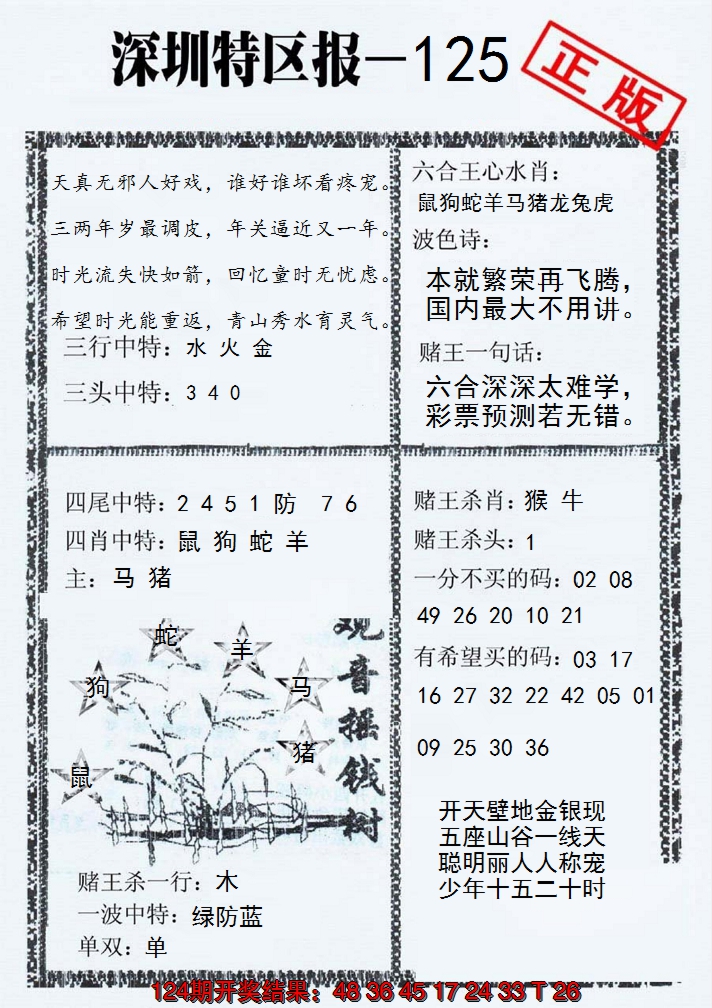 深圳特区报—125
正版
天真无邪人好戏，谁好谁坏看疼宠。
三两年岁最调皮，年关逼近又一年。
时光流失快如箭，回忆童时无忧虑。
希望时光能重返，青山秀水育灵气。
三行中特：水 火 金
三头中特：3 4 0
六合王心水肖：
鼠狗蛇羊马猪龙兔虎
波色诗：
本就繁荣再飞腾，
国内最大不用讲。
赌王一句话：
六合深深太难学，
彩票预测若无错。
四尾中特：2 4 5 1 防 7 6
四肖中特：鼠 狗 蛇 羊
主：马 猪
蛇
羊
狗
马
猪
鼠
观音摇钱树
赌王杀一行：木
一波中特：绿防蓝
单双：单
赌王杀肖：猴 牛
赌王杀头：1
一分不买的码：02 08
49 26 20 10 21
有希望买的码：03 17
16 27 32 22 42 05 01
09 25 30 36
开天壁地金银现
五座山谷一线天
聪明丽人人称宠
少年十五二十时
124期开奖结果：48 36 45 17 24 33 T 26